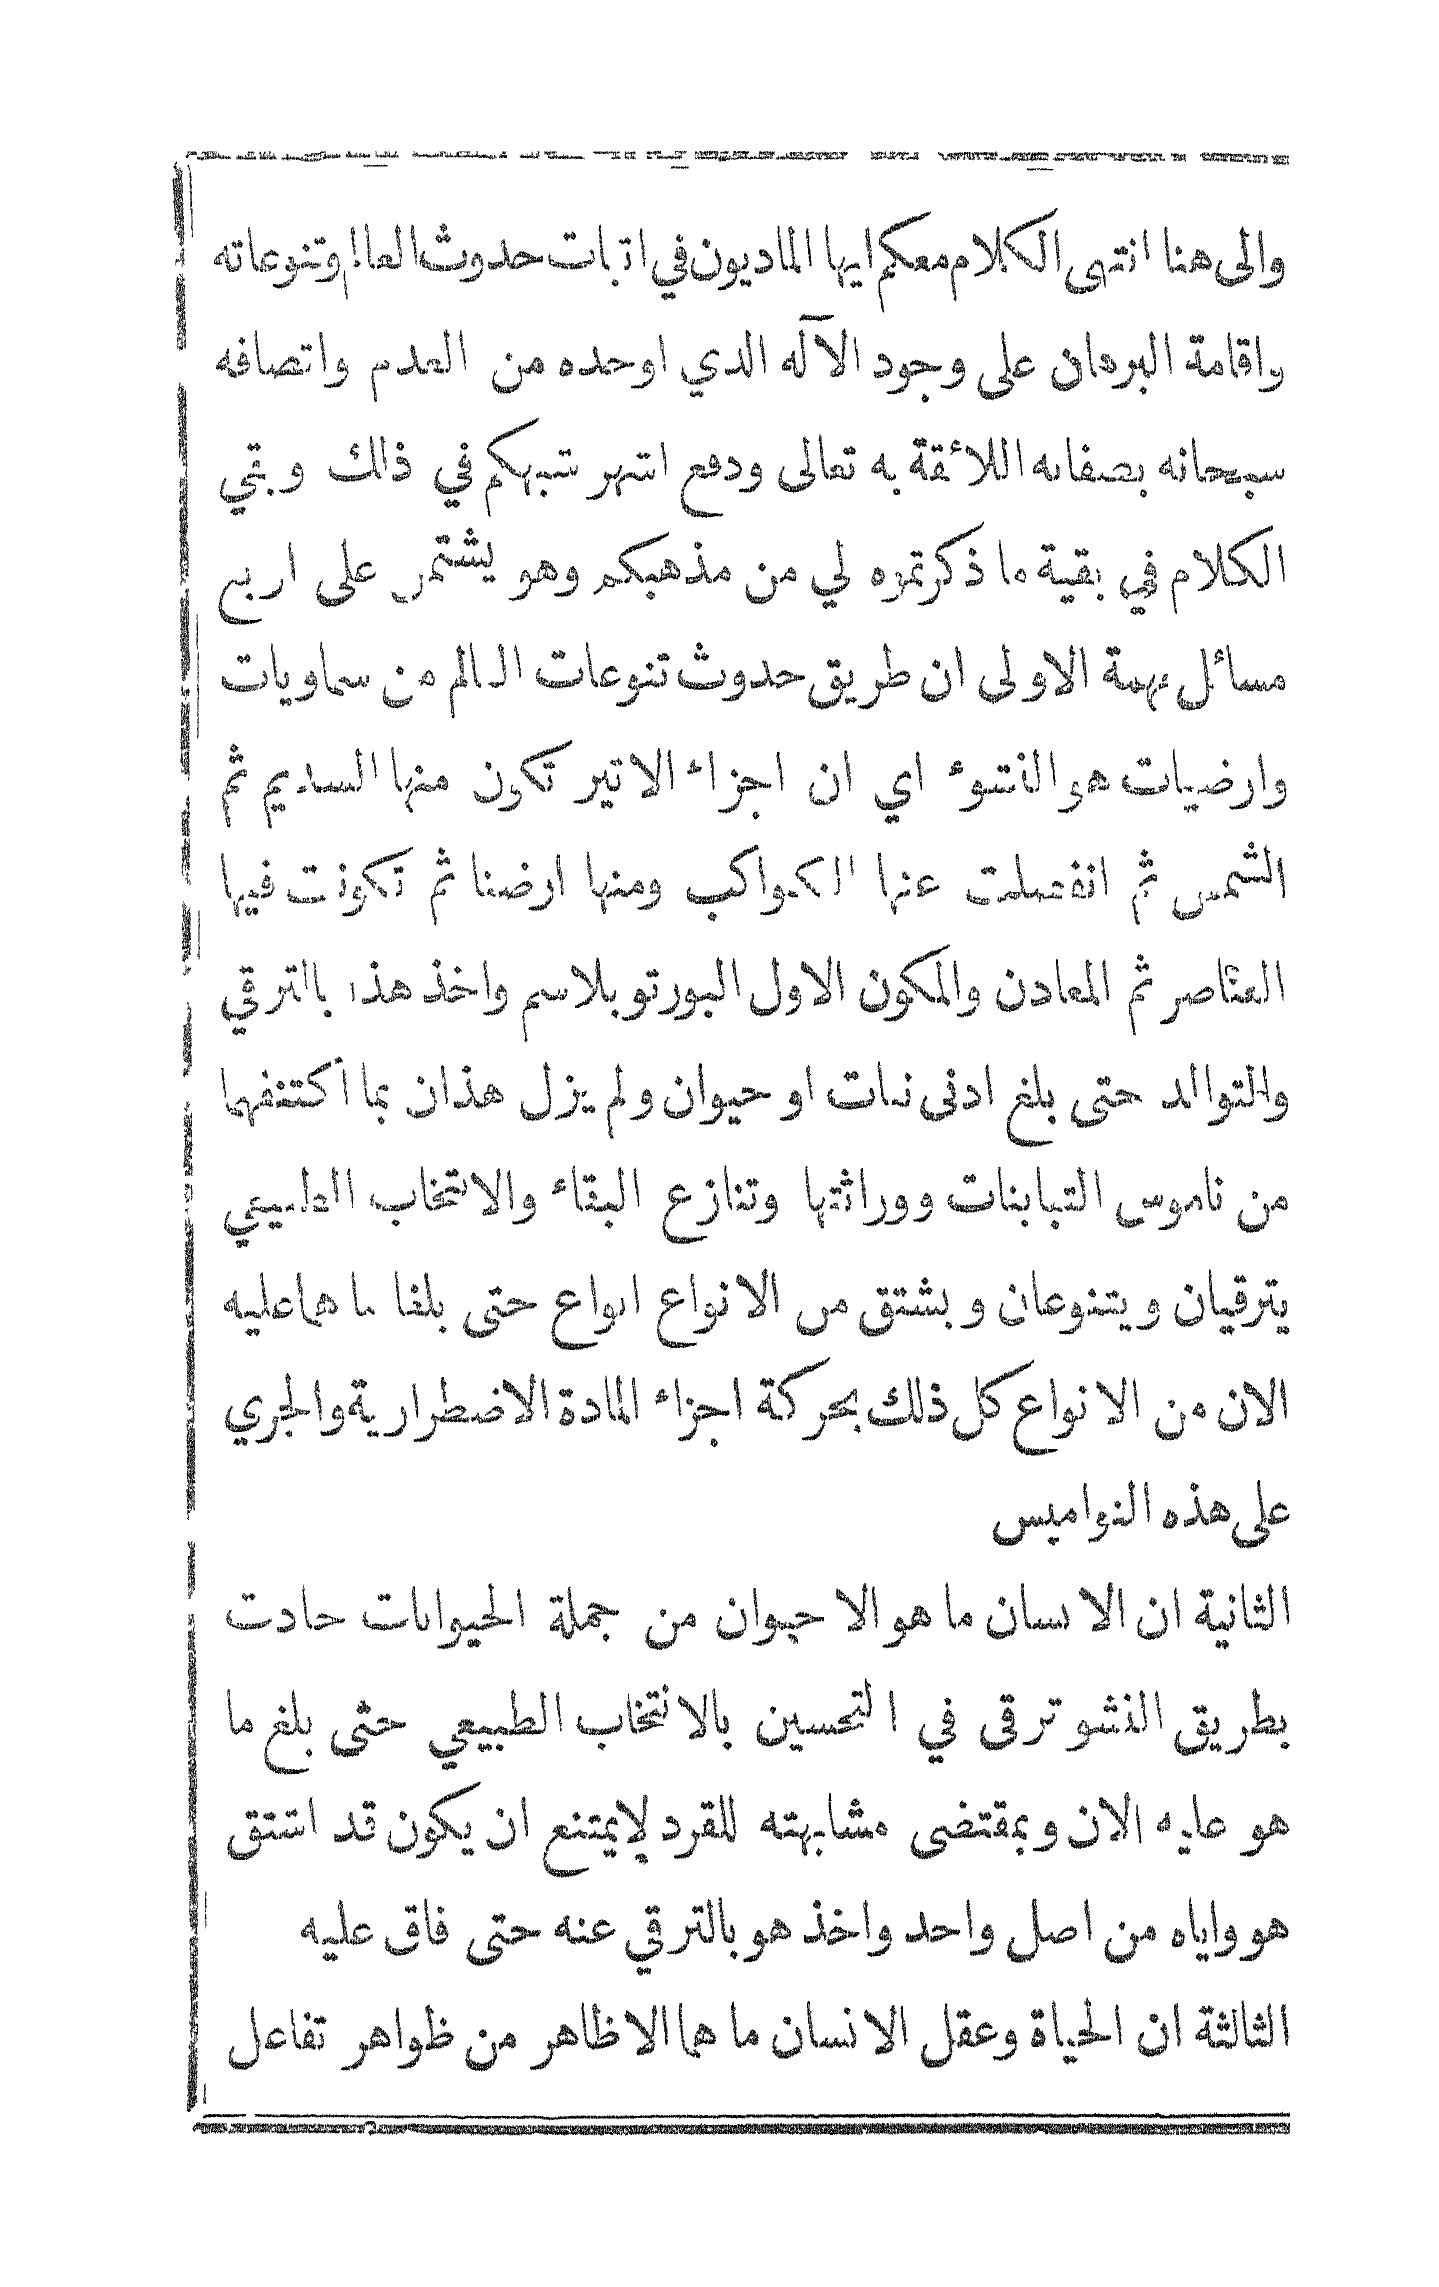 والى هنا انتهى الكلام معكم ايها الماديون في اثبات حدوث العالم وتنوعاته
واقامة البرهان على وجود الآله الذي اوجده من العدم واتصافه
سبحانه بصفاته اللائقة به تعالى ودفع اشهر شبهكم في ذلك وبقي
الكلام في بقية ما ذكرتموه لي من مذهبكم وهو يشتمل على اربع
مسائل مهمة الاولى ان طريق حدوث تنوعات العالم من سماويات
وارضيات هو النشوء اي ان اجزاء الاثير تكون منها السديم ثم
الشمس ثم انفصلت عنها الكواكب ومنها ارضنا ثم تكونت فيها
العناصر ثم المعادن والمكون الاول البورتوبلاسم واخذ هذا بالترقي
والتوالد حتى بلغ ادنى نبات او حيوان ولم يزل هذان بما اكتنفهما
من ناموس التباينات ووراثتها وتنازع البقاء والانتخاب الطبيعي
يترقيان ويتنوعان ويشتق من الانواع انواع حتى بلغا ما هما عليه
الان من الانواع كل ذلك بحركة اجزاء المادة الاضطرارية والجري
على هذه النواميس
الثانية ان الانسان ما هو الا حيوان من جملة الحيوانات حادث
بطريق النشو ترقى في التحسين بالانتخاب الطبيعي حتى بلغ ما
هو عليه الان وبمقتضى مشابهته للقرد لايمتنع ان يكون قد اشتق
هو واياه من اصل واحد واخذ هو بالترقي عنه حتى فاق عليه
الثالثة ان الحياة وعقل الانسان ما هما الا ظاهر من ظواهر تفاعل